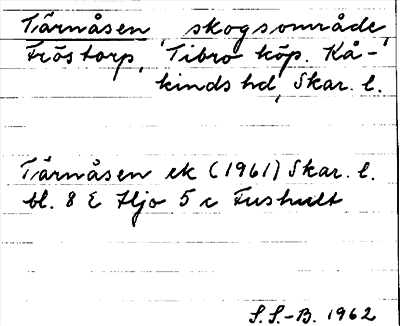 Tärnåsen, skogsområde,
Fröstorp, Tibro köp. Kå-
kinds hd, Skar. l.
Tärnåsen ek (1961) Skar. l.
bl. 8 E Hjo 5 c Fushult
S.S.-B. 1962